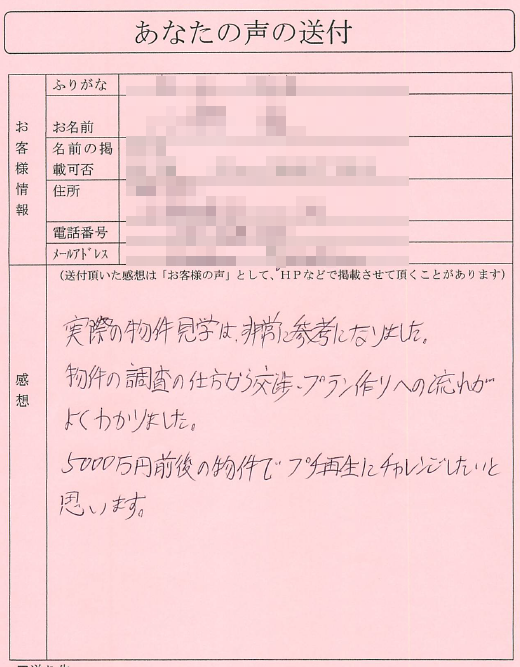 あなたの声の送付
お客様情報
ふりがな
お名前
名前の掲
載可否
住所
電話番号
メールアドレス
(送付頂いた感想は「お客様の声」として、HPなどで掲載させて頂くことがあります)
感想
実際の物件見学は、非常に参考になりました。
物件の調査の仕方から交渉・プラン作りへの流れが
よくわかりました。
5000万円前後の物件でプチ再生にチャレンジしたいと
思います。